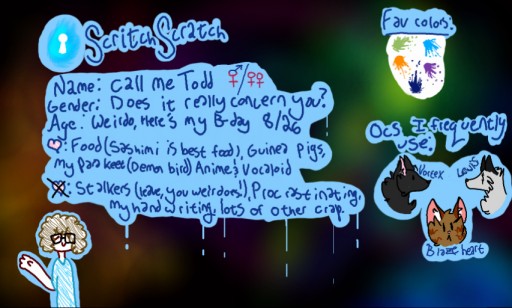 ScritchScratch
Name: Call me Todd ♀/♀♀
Gender: Does it really concern you?
Age: Weirdo, Here's my B-day 8/26
: Food (Sashimi is best food), Guinea Pigs,
my Parakeet (Demon bird) Anime & Vocaloid
: Stalkers (leave, you weirdoes!), Procrastinating,
my handwriting, lots of other crap.
Fav colors:
Ocs I frequently
use:
Vortex
Lewis
Blaze heart